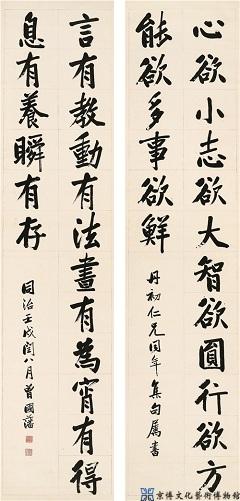 心欲小志欲大智欲圓行欲方
能欲多事欲鮮
丹初仁兄同年集句属書
言有教動有法晝有為宵有得
息有養瞬有存
同治壬戌閏八月曾國藩
京博文化藝術博物館